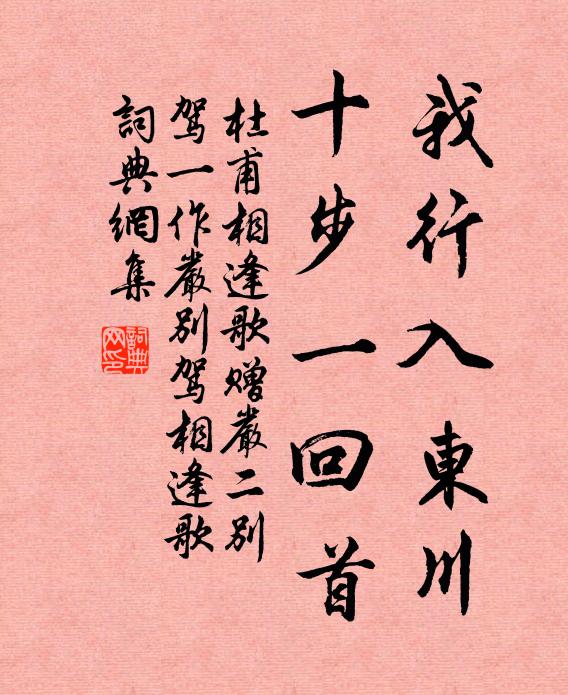 我行入東川
十步一回首
杜甫相逢歌贈嚴二別
駕一作嚴別駕相逢歌
詞典網集
詞典
网印